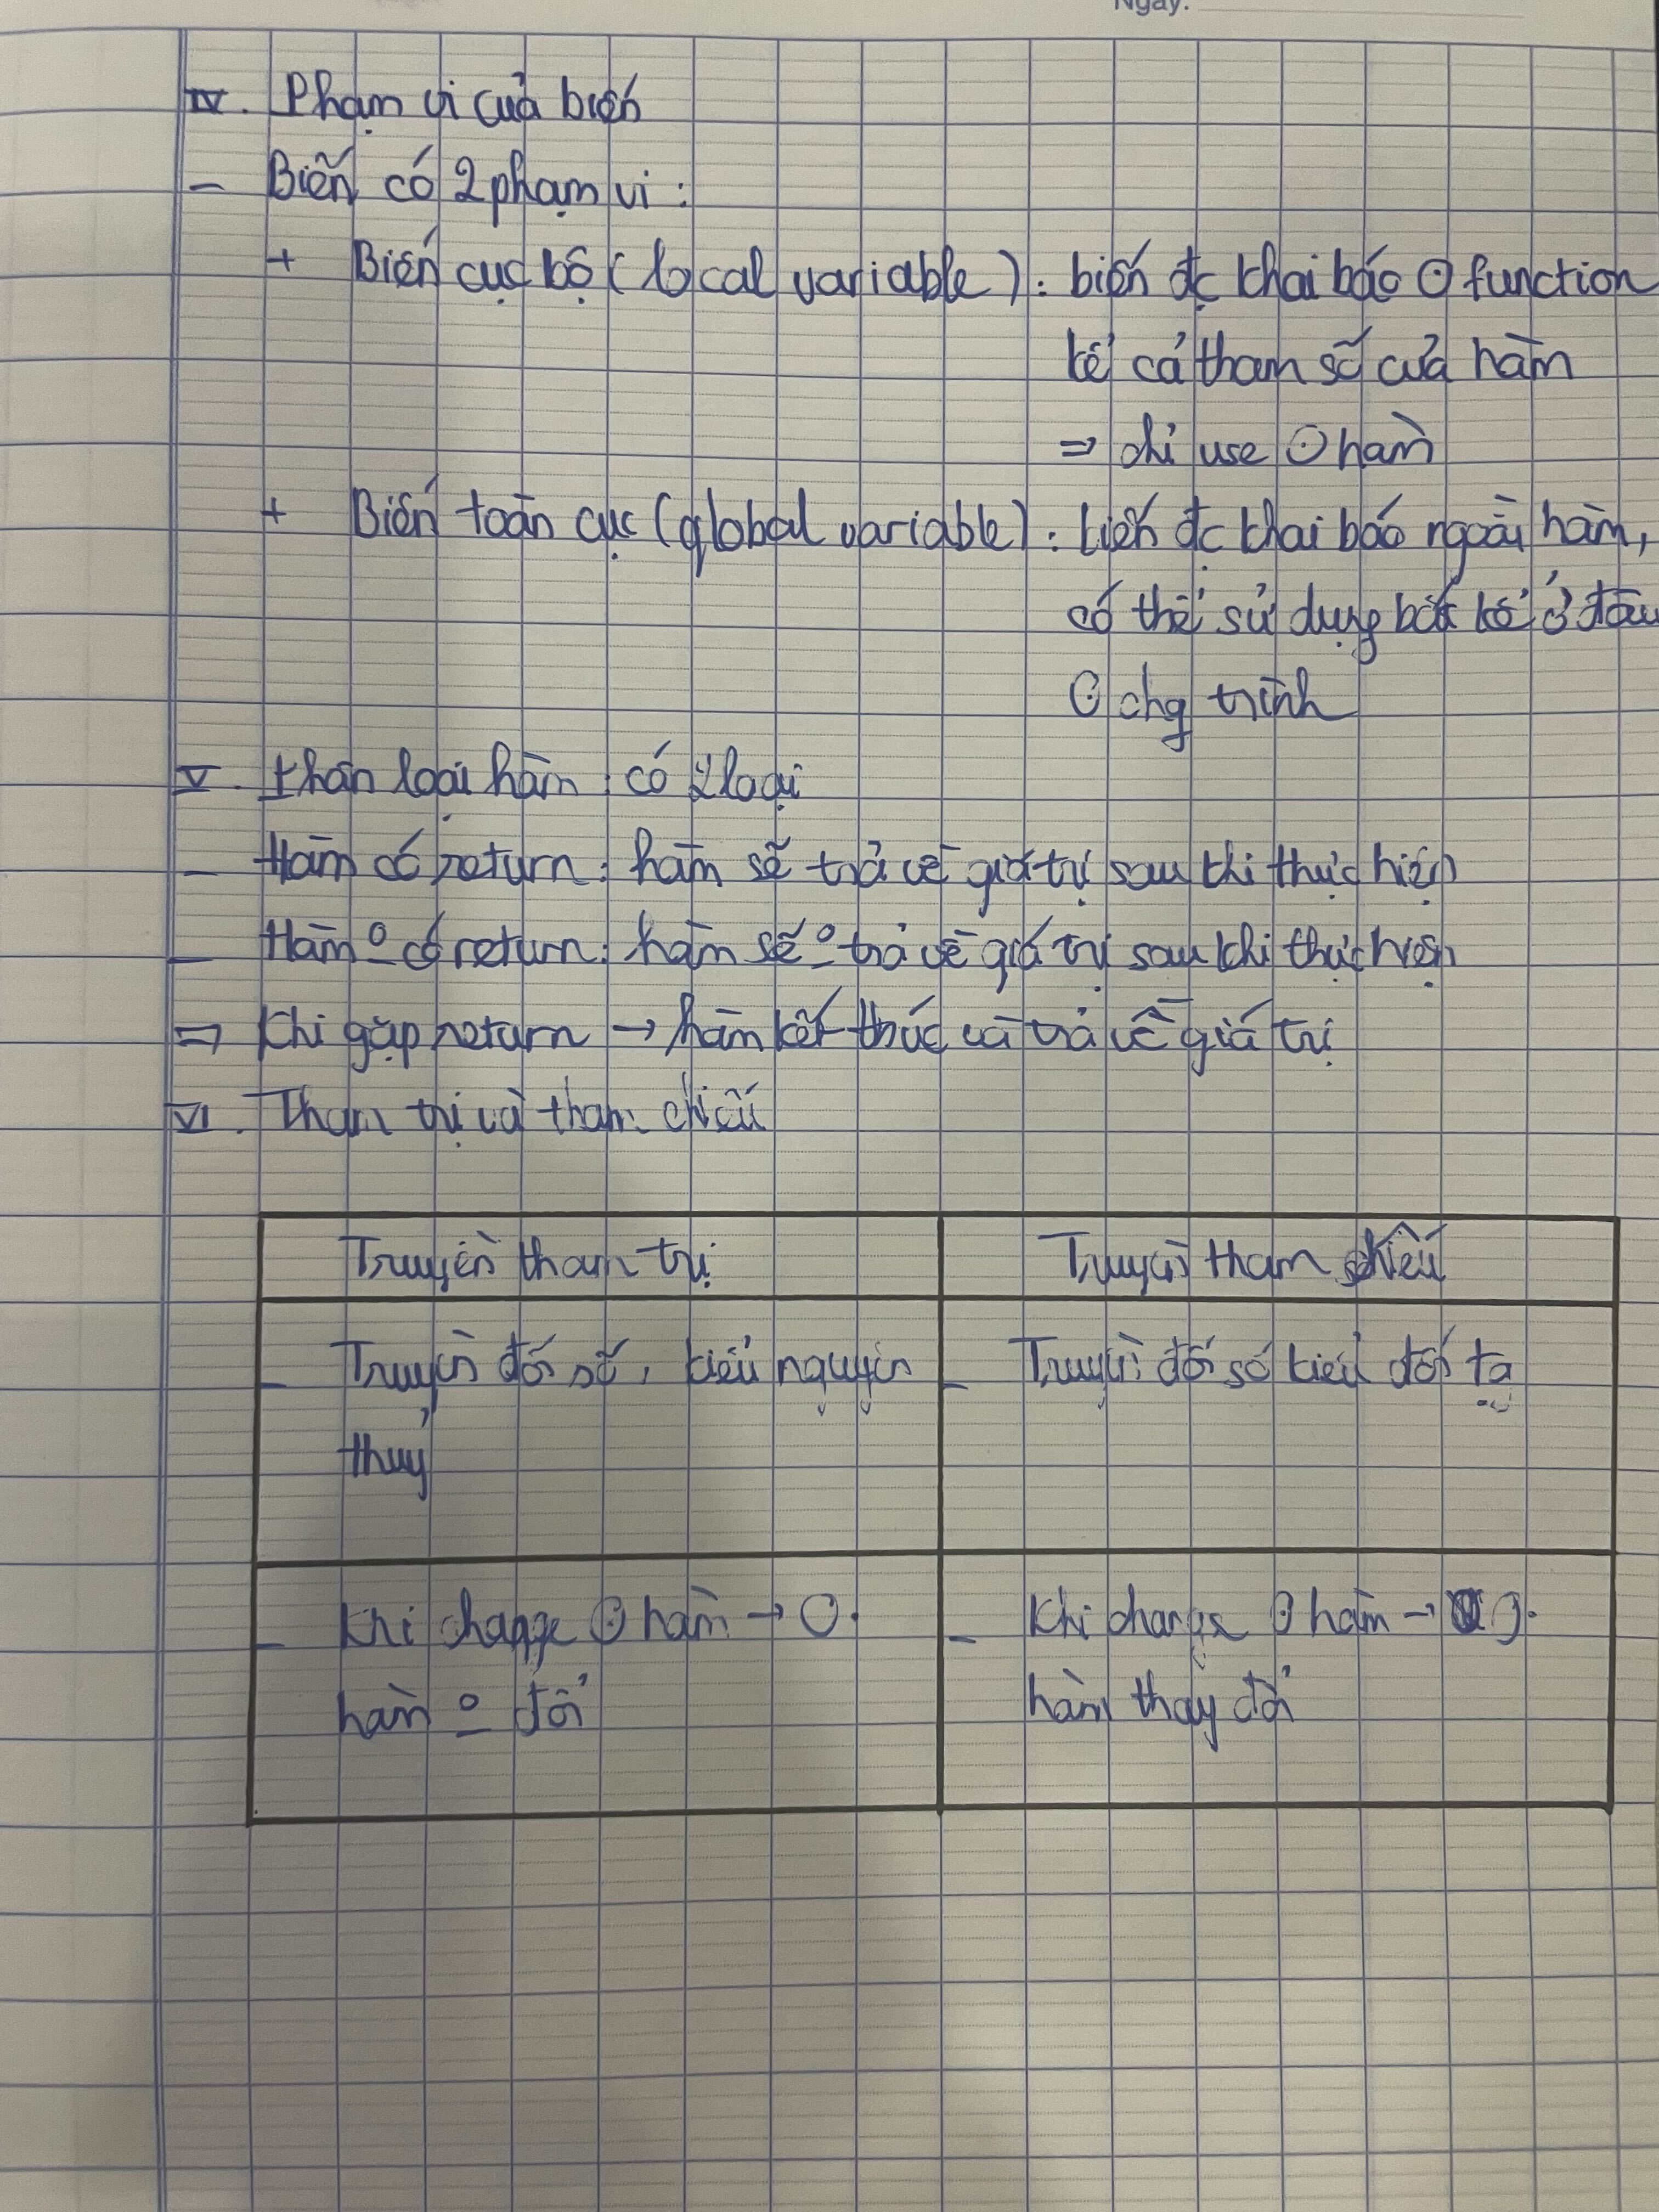 Ngày:
IV. Phạm vi của biến
- Biến có 2 phạm vi:
+ Biến cục bộ (local variable): biến đc khai báo ⊙ function
kể cả tham số của hàm
⇒ chỉ use ⊙ hàm
+ Biến toàn cục (global variable): biến đc khai báo ngoài hàm,
có thể sử dụng bất kể ở đâu
⊙ chg trình
V. Phân loại hàm: có 2 loại
- Hàm có return: hàm sẽ trả về giá trị sau khi thực hiện
- Hàm o̲ có return: hàm sẽ o̲ trả về giá trị sau khi thực hiện
⇒ Khi gặp return → hàm kết thúc và trả về giá trị
VI. Tham trị và tham chiếu
Truyền tham trị Truyền tham chiếu
- Truyền đối số, kiểu nguyên - Truyền đối số kiểu đối tg
thuỷ
- Khi change ⊙ hàm → O. - Khi change ⊙ hàm → O.
hàm o̲ đổi hàm thay đổi